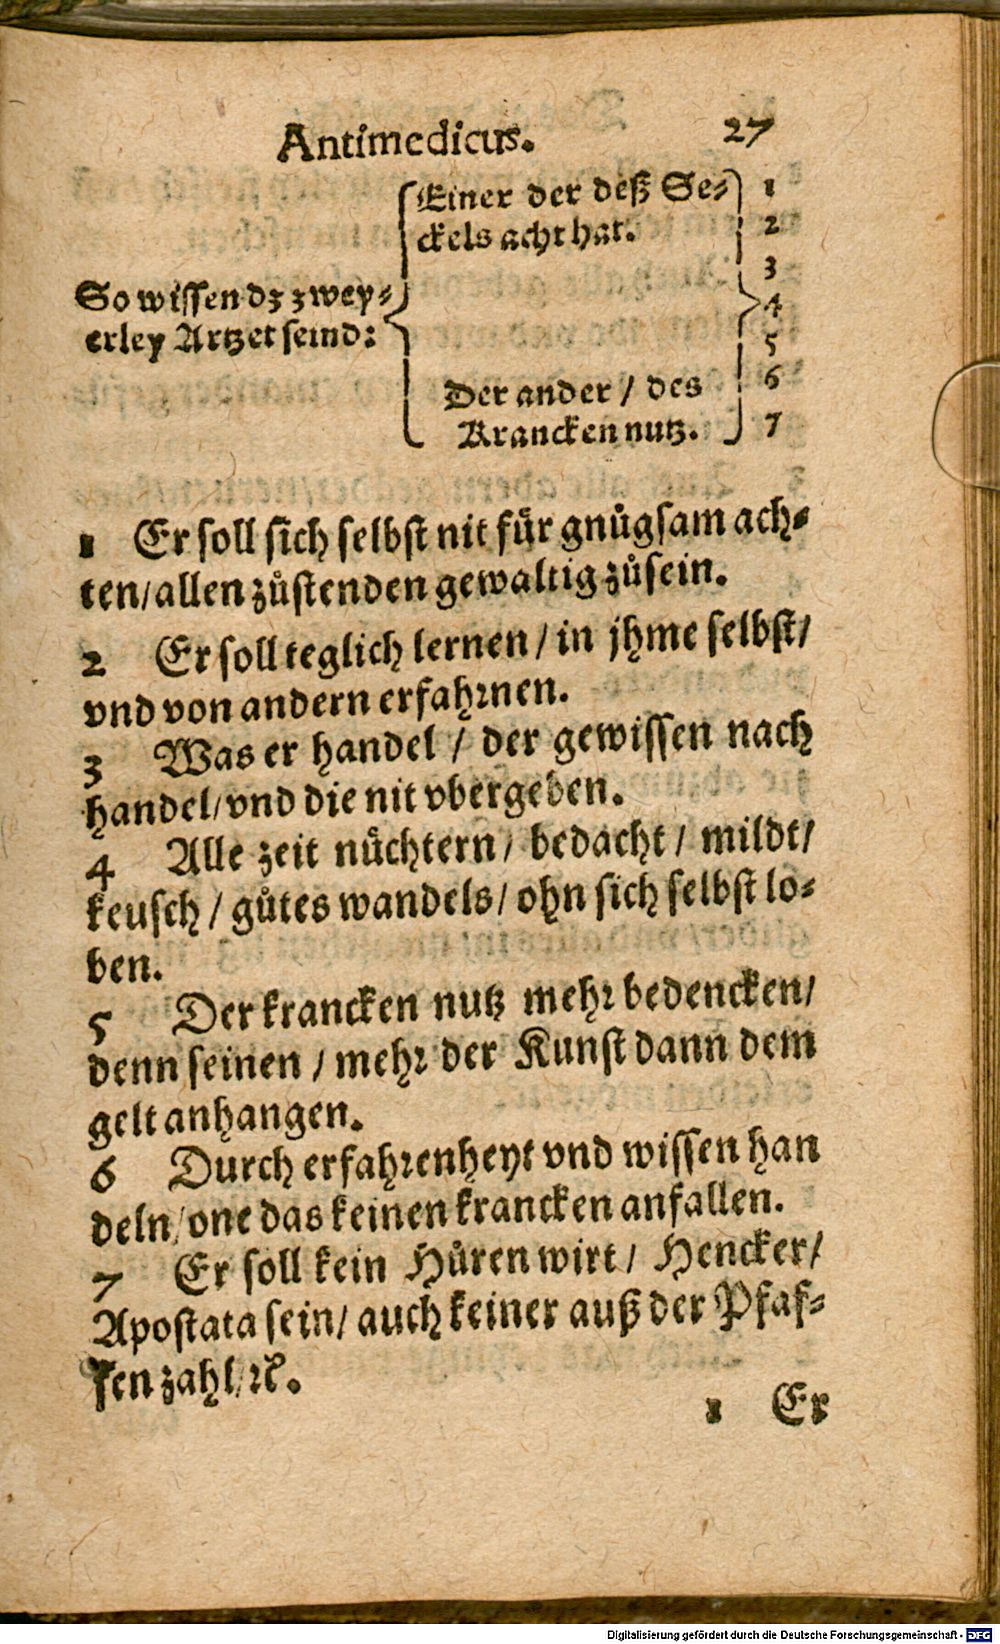 Antimedicus. 27
Einer der deß Se⸗
ckels acht hat.
So wissen dz zwey⸗
erley Artzet seind:
Der ander / des
Krancken nutz.
1
2
3
4
5
6
7
1 Er soll sich selbst nit fuͤr gnuͦgsam ach⸗
ten/allen zuͦstenden gewaltig zuͦsein.
2 Er soll teglich lernen / in jhme selbst/
vnd von andern erfahrnen.
3 Was er handel / der gewissen nach
handel/vnd die nit vbergeben.
4 Alle zeit nuͤchtern/ bedacht / mildt/
keusch / guͦtes wandels/ ohn sich selbst lo⸗
ben.
5 Der krancken nutz mehr bedencken/
denn seinen / mehr der Kunst dann dem
gelt anhangen.
6 Durch erfahrenheyt vnd wissen han
deln/one das keinen krancken anfallen.
7 Er soll kein Huͦren wirt / Hencker/
Apostata sein/ auch keiner auß der Pfaf⸗
fen zahl/ꝛc.
1 Er
Digitalisierung gefördert durch die Deutsche Forschungsgemeinschaft - DFG